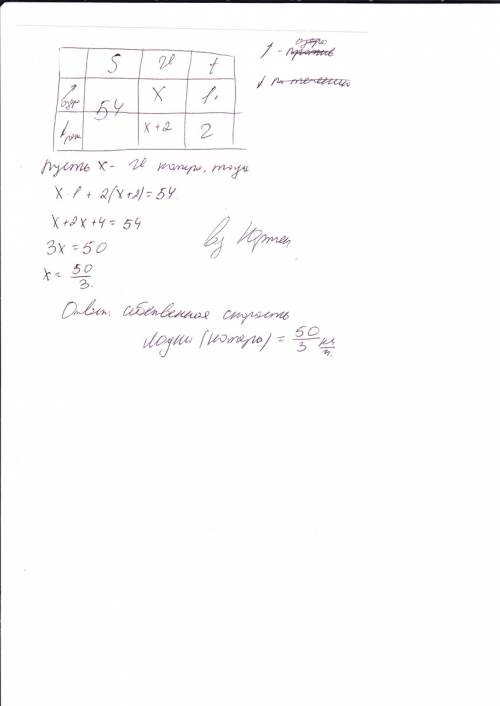 S v t
↑ озро 54 x 1.
↓ x+2 2
↑ - озро против
↓ по течению
Пусть x - v катера, тогда
x·1 + 2(x+2)=54.
x+2x+4=54
3x=50
x= 50/3.
by
Ответ: собственная скорость
лодки (катера) = 50/3 км/ч.